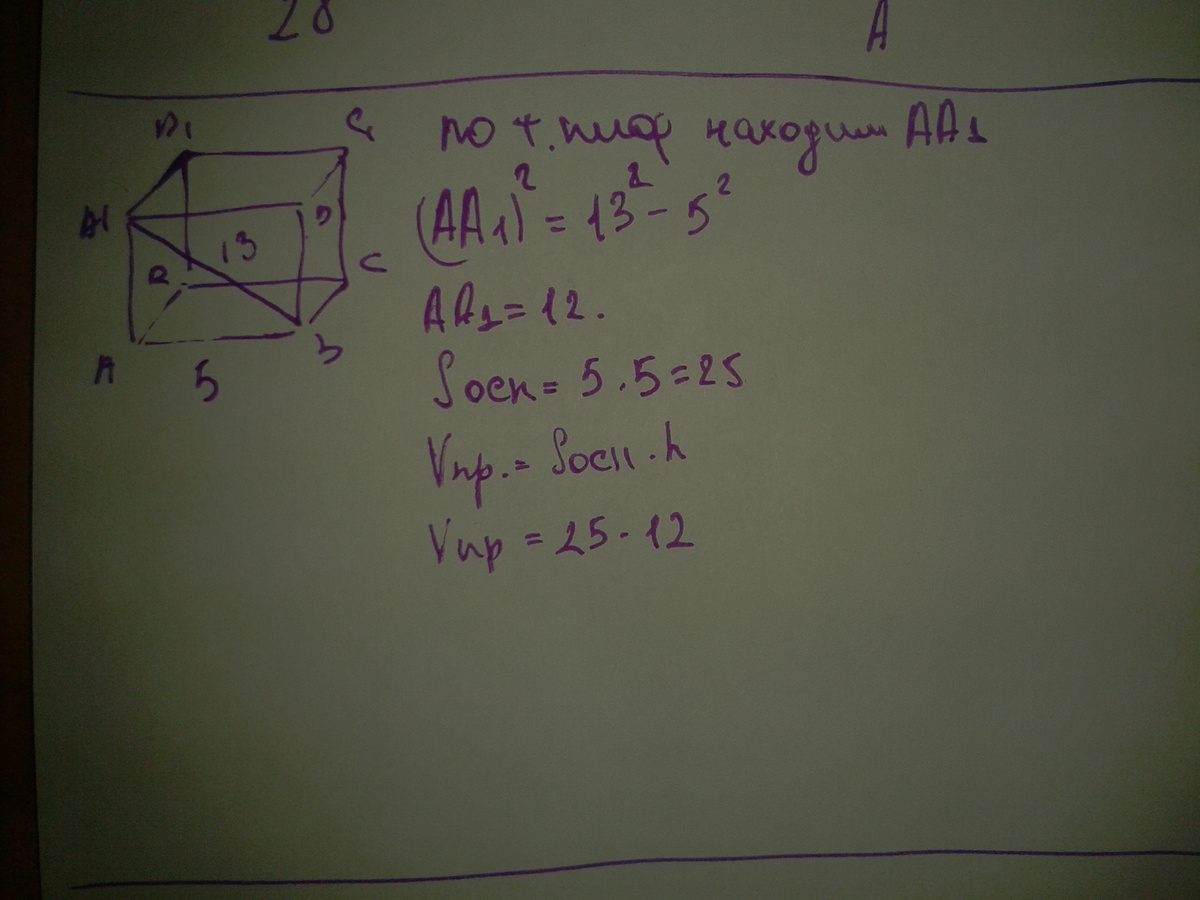 28
A
D1 C1
A1 13 D
C
A 5 B
по т. пиф находим AA1
(AA1)² = 13² - 5²
AA1 = 12.
Sосн = 5 · 5 = 25
Vпр. = Sосн · h
Vпр = 25 · 12